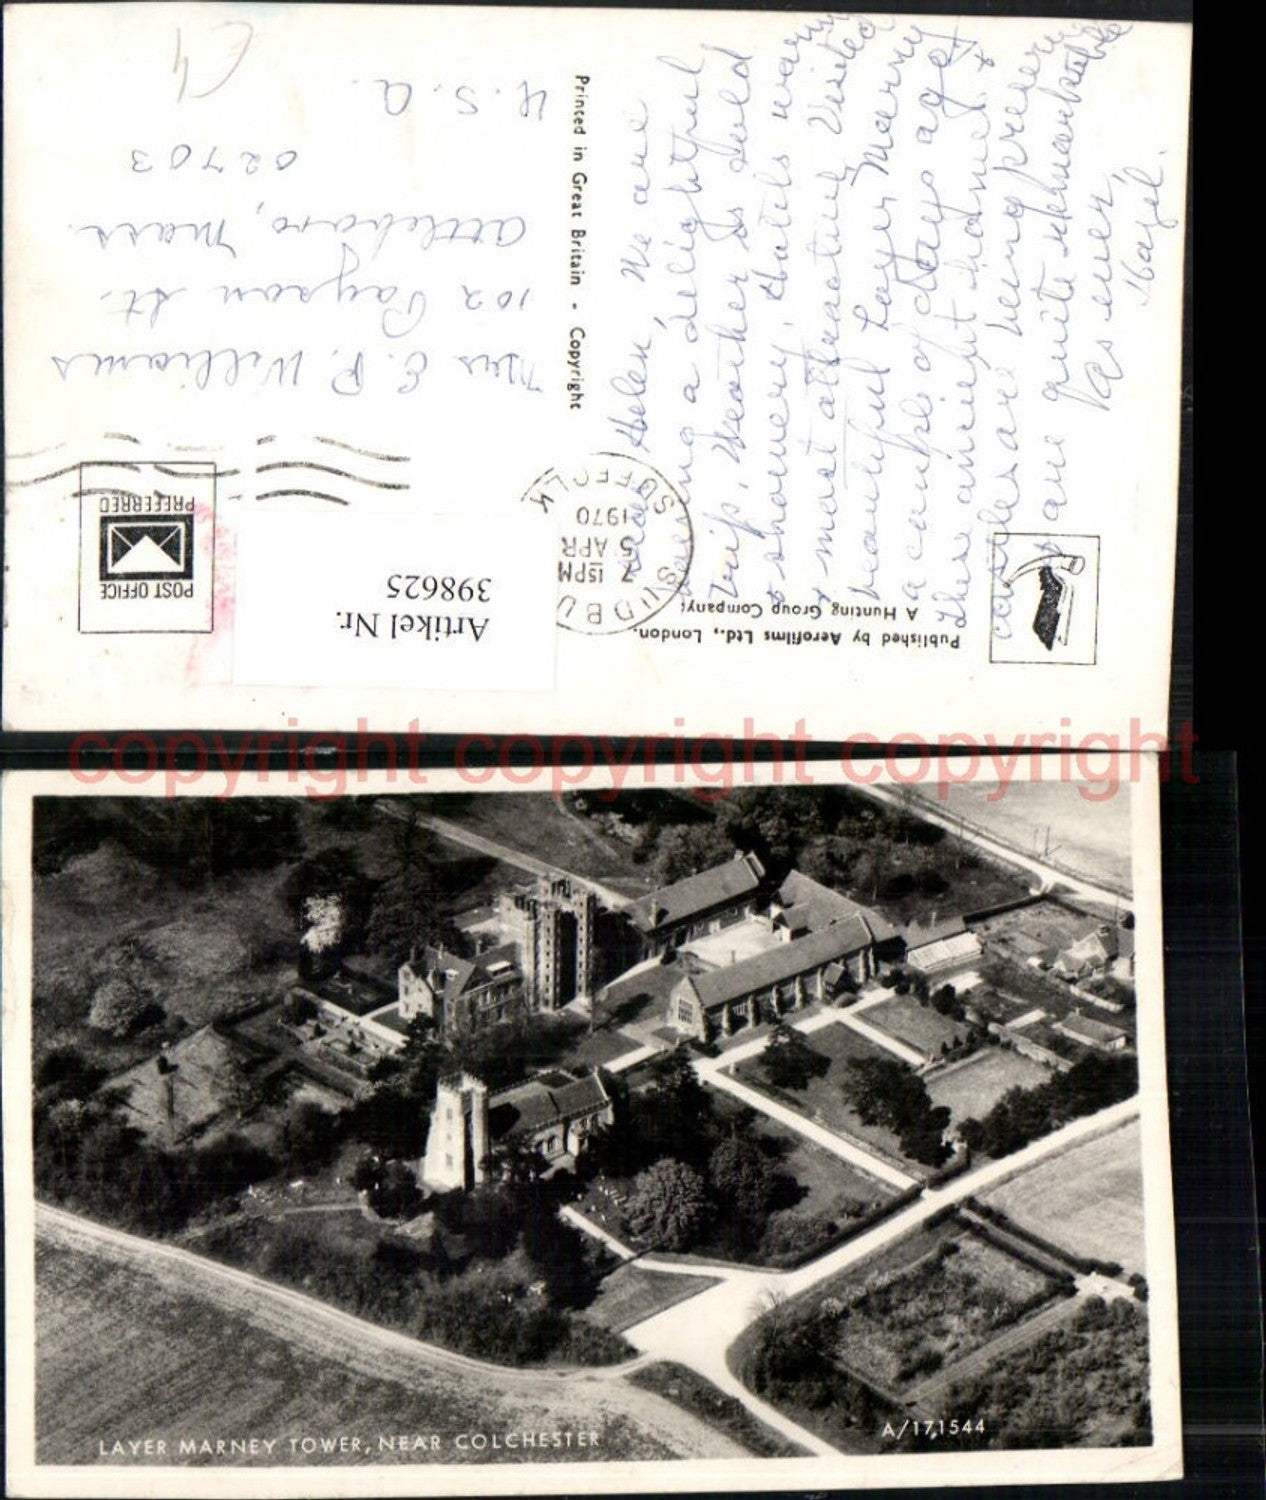 Published by Aerofilms Ltd., London.
A Hunting Group Company:
Artikel Nr.
398625
SUDBURY
7 15PM
5 APR
1970
SUFFOLK
POST OFFICE
PREFERRED
Printed in Great Britain • Copyright
Mrs E. P. Williams
102 Payson St.
Attleboro, Mass.
02703
U.S.A.
C4
Dear Helen, We are
having a delightful
trip, Weather is cold
& showery. Hotels warm
& most attractive. Visited
beautiful Layer Marney
a couple of days ago.
These ancient houses &
castles are being preserved
& are quite remarkable
As ever,
Hazel.
copyright copyright copyright
LAYER MARNEY TOWER, NEAR COLCHESTER
A/171544